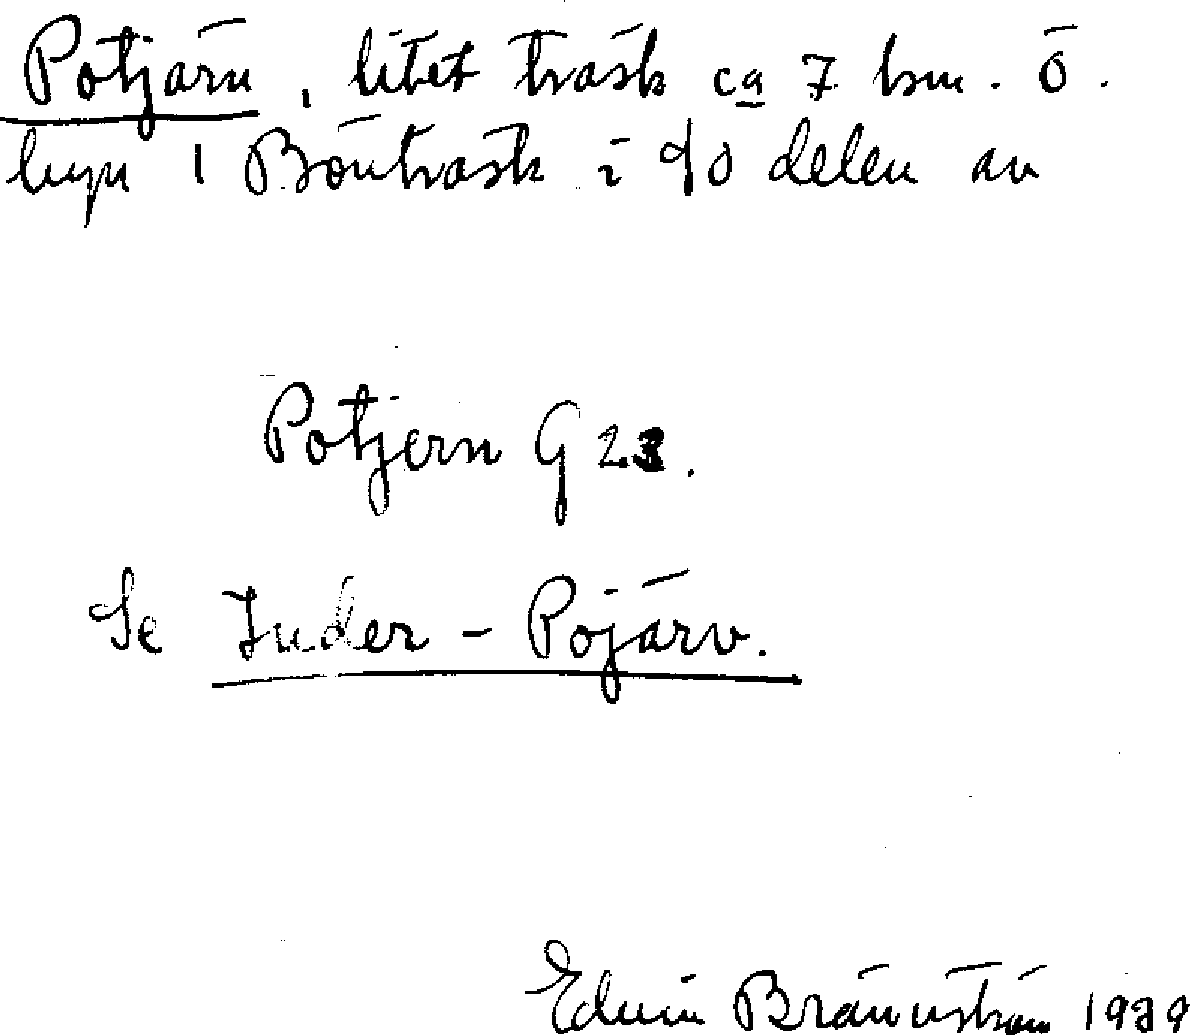 Potjärn, litet träsk ca 7 km. ö.
byn i Böuträsk i NO delen av
Potjern G 23.
Se Inder-Pojärv.
Edvin Brännström 1939